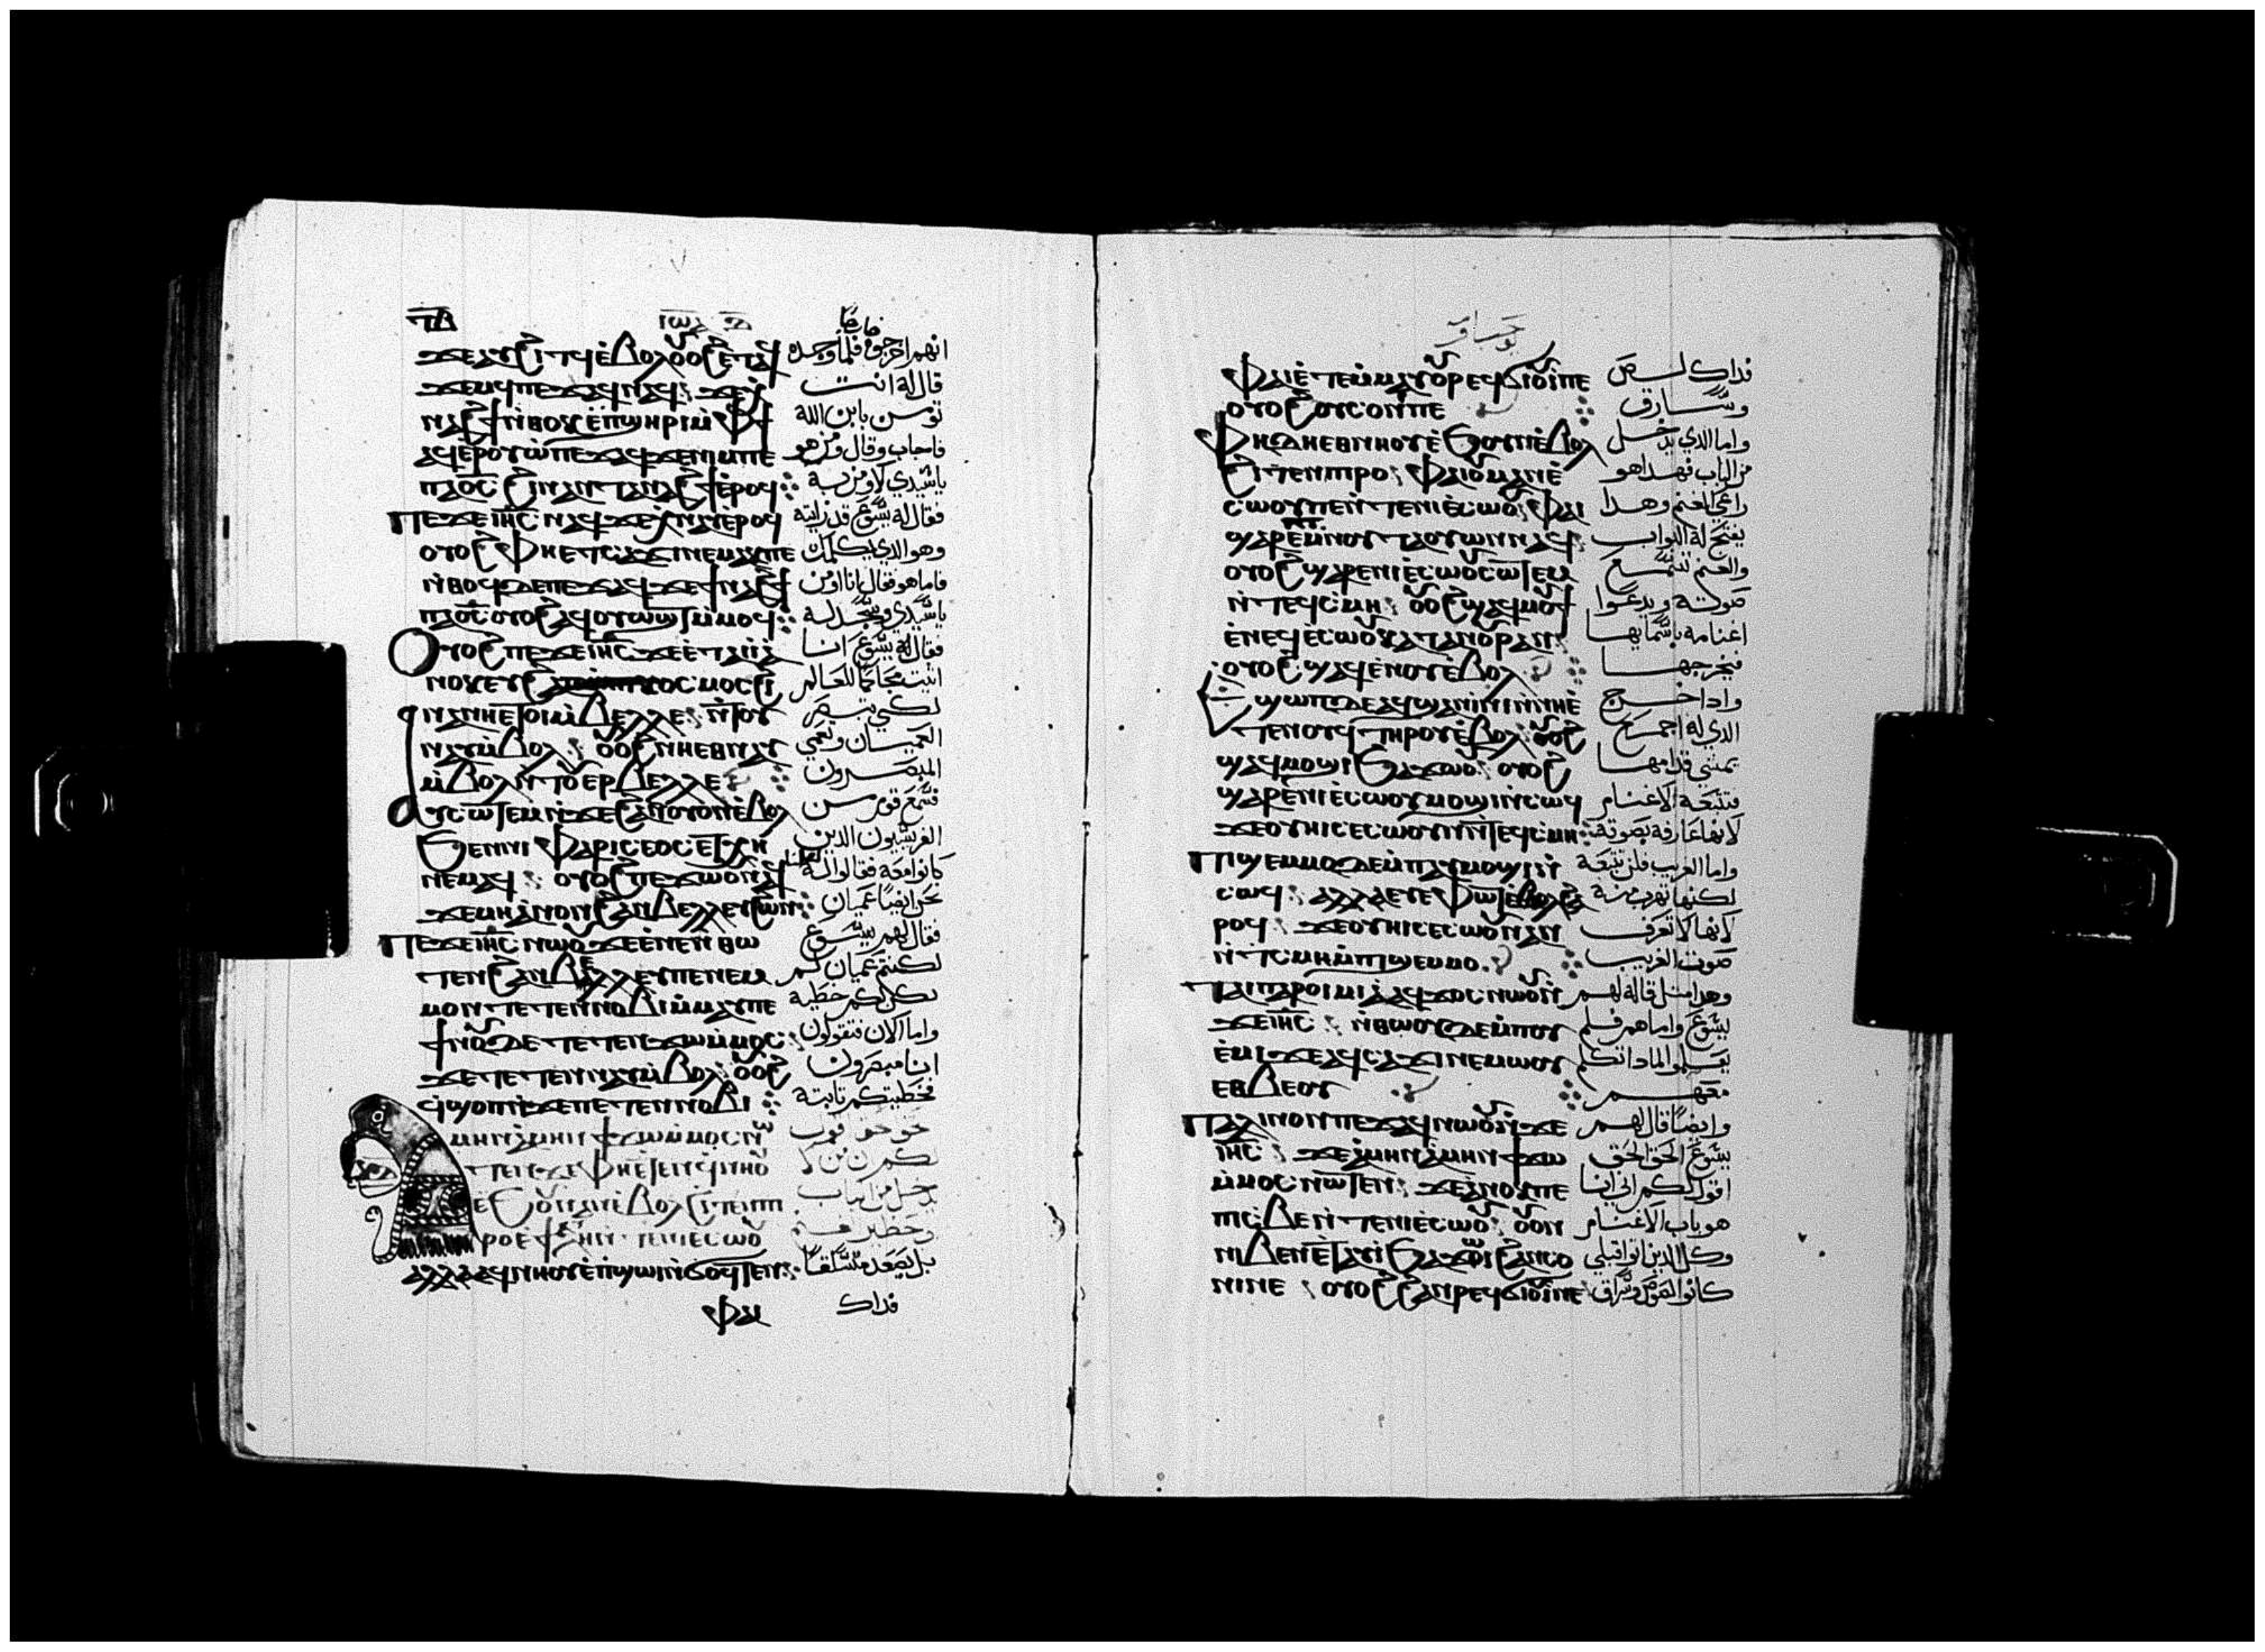 ϫⲉⲁⲩϩⲓⲧϥ ⲉ̀ⲃⲟⲗ ⲟⲩⲟϩ ⲉ̀ⲧⲁϥ
ϫⲉⲙϥ ⲡⲉϫⲁϥ ⲛⲁϥ ϫⲉ
ⲛⲁϩϯ ⲛ̀ⲑⲟⲕ ⲉ̀ⲡϣⲏⲣⲓ ⲙ̀ⲫϯ
ⲁϥⲉⲣⲟⲩⲱ̀ ⲡⲉϫⲁϥ ϫⲉ ⲛⲓⲙ ⲡⲉ
ⲡⲁϭⲥ ϩⲓⲛⲁ ⲛ̀ⲧⲁⲛⲁϩϯ ⲉ̀ⲣⲟϥ
ⲡⲉϫⲉ ⲓⲏⲥ ⲛⲁϥ ϫⲉ ⲁⲕⲛⲁⲩ ⲉ̀ⲣⲟϥ
ⲟⲩⲟϩ ⲫⲏⲉⲧⲥⲁϫⲓ ⲛⲉⲙⲁⲕ ⲡⲉ
ⲛ̀ⲑⲟϥ ⲇⲉ ⲡⲉϫⲁϥ ϫⲉ ϯⲛⲁϩϯ
ⲡⲁϭⲥ ⲟⲩⲟϩ ⲁϥⲟⲩⲱϣⲧ ⲙ̀ⲙⲟϥ
ⲟⲩⲟϩ ⲡⲉϫⲉ ⲓⲏⲥ ϫⲉ ⲉ̀ⲧⲁⲓⲓ̀
ⲛⲁⲛⲏⲉⲧⲟⲓ ⲙ̀ⲃⲉⲗⲗⲉ ⲛ̀ⲧⲟⲩ
ⲛⲁⲩ ⲙ̀ⲃⲟⲗ ⲟⲩⲟϩ ⲛⲏⲉⲑⲛⲁⲩ
ⲙ̀ⲃⲟⲗ ⲛ̀ⲧⲟⲩⲉⲣⲃⲉⲗⲗⲉ
ⲁⲩⲥⲱⲧⲉⲙ ⲛ̀ϫⲉ ϩⲁⲛⲟⲩⲟⲛ ⲉ̀ⲃⲟⲗ
ϧⲉⲛ ⲛⲓⲫⲁⲣⲓⲥⲉⲟⲥ ⲉⲧⲭⲏ
ⲛⲉⲙⲁϥ ⲟⲩⲟϩ ⲡⲉϫⲱⲟⲩ ⲛⲁϥ
ϫⲉ ⲙⲏ ⲁ̀ⲛⲟⲛ ϩⲁⲛⲃⲉⲗⲗⲉⲩ ϩⲱⲛ
ⲡⲉϫⲉ ⲓⲏⲥ ⲛⲱⲟⲩ ϫⲉ ⲉ̀ⲛⲉ ⲛ̀ⲑⲱ
ⲧⲉⲛ ϩⲁⲛⲃⲉⲗⲗⲉⲩ ⲡⲉ ⲛⲉⲙ
ⲙⲟⲛ ⲧⲉⲧⲉⲛⲛⲟⲃⲓ ⲙ̀ⲙⲁⲩ ⲡⲉ
ϯⲛⲟⲩ ⲇⲉ ⲧⲉⲧⲉⲛϫⲱ ⲙ̀ⲙⲟⲥ
ϫⲉ ⲧⲉⲧⲉⲛⲛⲁⲩ ⲙ̀ⲃⲟⲗ ⲟⲩⲟϩ
ϥϣⲟⲡ ⲛ̀ϫⲉ ⲡⲉⲧⲉⲛⲛⲟⲃⲓ
ⲁⲙⲏⲛ ⲁ̀ⲙⲏⲛ ϯϫⲱ ⲙ̀ⲙⲟⲥ ⲛⲱ
ⲧⲉⲛ ϫⲉ ⲫⲏⲉⲧⲉⲛϥⲛⲏⲟⲩ
ⲉ̀ϧⲟⲩⲛ ⲁⲛ ⲉ̀ⲃⲟⲗ ϩⲓⲧⲉⲛ ⲡⲓ
ⲣⲟ ⲉ̀ϯⲁⲩⲗⲏ ⲛ̀ⲧⲉ ⲛⲓⲉ̀ⲥⲱⲟⲩ
ⲁⲗⲗⲁ ⲁϥⲛⲏⲟⲩ ⲉ̀ⲡϣⲱⲓ ⲛ̀ϭⲟϥⲧⲉⲛ
ⲫⲁⲓ
انهم اخرجوه خارجا فلما وجده
قال له انت
تومن بابن الله
فاجاب وقال ومن هو
ياسيدي لاومن به
فقال له يسوع قد رايته
وهو الذي يكلمك
فاما هو فقال انا اومن
ياسيدي وسجد له
فقال له يسوع انا
لكي تبصر
العميان وتعمي
المبصرون
فسمع قوم من
الفريسيون الذين
كانوا معه فقالوا له
نحن ايضا عميان
فقال لهم يسوع
لكنتم عميان لم
تكن لكم خطية
واما الان فتقولون
اننا مبصرون
فخطيتكم ثابتة
بل يصعد متسلقا
فداك
ⲫⲁⲓ ⲉ̀ⲧⲉⲙⲙⲁⲩ ⲟⲩⲣⲉϥϭⲓⲟⲩⲓ̀ ⲡⲉ
ⲟⲩⲟϩ ⲟⲩⲥⲟⲛⲓ ⲡⲉ
ⲫⲏ ⲇⲉ ⲉⲑⲛⲏⲟⲩ ⲉ̀ϧⲟⲩⲛ ⲉ̀ⲃⲟⲗ
ϩⲓⲧⲉⲛ ⲡⲓⲣⲟ ⲫⲁⲓ ⲟⲩⲙⲁⲛⲉ̀
ⲥⲱⲟⲩ ⲡⲉ ⲛ̀ⲧⲉ ⲛⲓⲉ̀ⲥⲱⲟⲩ ⲫⲁⲓ
ϣⲁⲣⲉ ⲡⲓⲙⲛⲟⲩⲧ ⲁⲟⲩⲱⲛ ⲛⲁϥ
ⲟⲩⲟϩ ϣⲁⲣⲉ ⲛⲓⲉ̀ⲥⲱⲟⲩ ⲥⲱⲧⲉⲙ
ⲛ̀ⲧⲉϥⲥⲙⲏ ⲟⲩⲟϩ ϣⲁϥⲙⲟⲩϯ
ⲉ̀ⲛⲉϥⲉ̀ⲥⲱⲟⲩ ⲕⲁⲧⲁ ⲛⲟⲩⲣⲁⲛ
ⲟⲩⲟϩ ϣⲁϥⲉ̀ⲛⲟⲩ ⲉ̀ⲃⲟⲗ
ⲉϣⲱⲡ ⲇⲉ ⲁϥϣⲁⲛⲓ̀ⲛⲓ ⲛ̀ⲛⲏⲉ̀
ⲧⲉⲛⲟⲩϥ ⲧⲏⲣⲟⲩ ⲉ̀ⲃⲟⲗ ⲟⲩⲟϩ
ϣⲁϥⲙⲟϣⲓ ϧⲁϫⲱⲟⲩ ⲟⲩⲟϩ
ϣⲁⲣⲉ ⲛⲓⲉ̀ⲥⲱⲟⲩ ⲙⲟϣⲓ ⲛ̀ⲥⲱϥ
ϫⲉ ⲟⲩⲏⲓ ⲥⲉⲥⲱⲟⲩⲛ ⲛ̀ⲧⲉϥⲥⲙⲏ
ⲡⲓϣⲉⲙⲙⲟ ⲇⲉ ⲙ̀ⲡⲁⲩⲙⲟϣⲓ ⲛ̀
ⲥⲱϥ ⲁⲗⲗⲁ ⲉⲩⲉ̀ⲫⲱⲧ ⲉ̀ⲃⲟⲗ ϩⲁ
ⲣⲟϥ ϫⲉ ⲟⲩⲏⲓ ⲥⲉⲥⲱⲟⲩⲛ ⲁⲛ
ⲛ̀ⲧⲥⲙⲏ ⲙ̀ⲡⲓϣⲉⲙⲙⲟ
ⲧⲁⲓⲡⲁⲣⲟⲓⲙⲓⲁ ⲁϥϫⲟⲥ ⲛⲱⲟⲩ ⲛ̀
ϫⲉ ⲓⲏⲥ ⲛ̀ⲑⲱⲟⲩ ⲇⲉ ⲙ̀ⲡⲟⲩ
ⲉ̀ⲙⲓ ϫⲉ ⲁϥⲥⲁϫⲓ ⲛⲉⲙⲱⲟⲩ
ⲉⲑⲃⲉⲟⲩ
ⲡⲁⲗⲓⲛ ⲟⲛ ⲡⲉϫⲁϥ ⲛⲱⲟⲩ ⲛ̀ϫⲉ
ⲓⲏⲥ ϫⲉ ⲁ̀ⲙⲏⲛ ⲁ̀ⲙⲏⲛ ϯϫⲱ
ⲙ̀ⲙⲟⲥ ⲛⲱⲧⲉⲛ ϫⲉ ⲁ̀ⲛⲟⲕ ⲡⲉ
ⲡⲓⲥⲃⲉ ⲛ̀ⲧⲉ ⲛⲓⲉ̀ⲥⲱⲟⲩ ⲟⲩⲟⲛ
ⲛⲓⲃⲉⲛ ⲉ̀ⲧⲁⲩⲓ̀ ϧⲁϫⲱⲓ ϩⲁⲛⲥⲟ
ⲛⲓ ⲛⲉ ⲟⲩⲟϩ ϩⲁⲛⲣⲉϥϭⲓⲟⲩⲓ̀ ⲛⲉ
فداك لص
وسارق
واما الذي يدخل
من الباب فهداهو
راعي الغنم وهدا
يفتح له البواب
والغنم تسمع
صوته ويدعوا
اغنامه باسمايها
فيخرجها
وادا اخرج
الذي له اجمع
تمشي قدامها
فتتبعه الاغنام
لانها عارفه بصوته
واما الغريب فلن تتبعه
لكنها تهرب منه
لانها لا تعرف
صوت الغريب
وهدا مثل قاله لهم
يسوع واما هم فلم
يعلموا لمادا تكلم
معهم
وايضا قال لهم
يسوع الحق الحق
اقول لكم اني انا
هو باب الاغنام
وكل الدين اتوا قبلي
كانوا لصوص وسراق